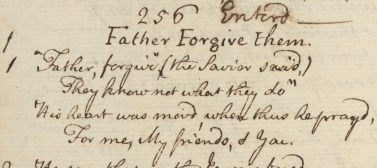 256 Enterd
1 Father Forgive them.
1 "Father, forgive, (the Savior said,)
They know not what they do"
His heart was mov'd when thus he pray'd,
For me, My friends, & You.